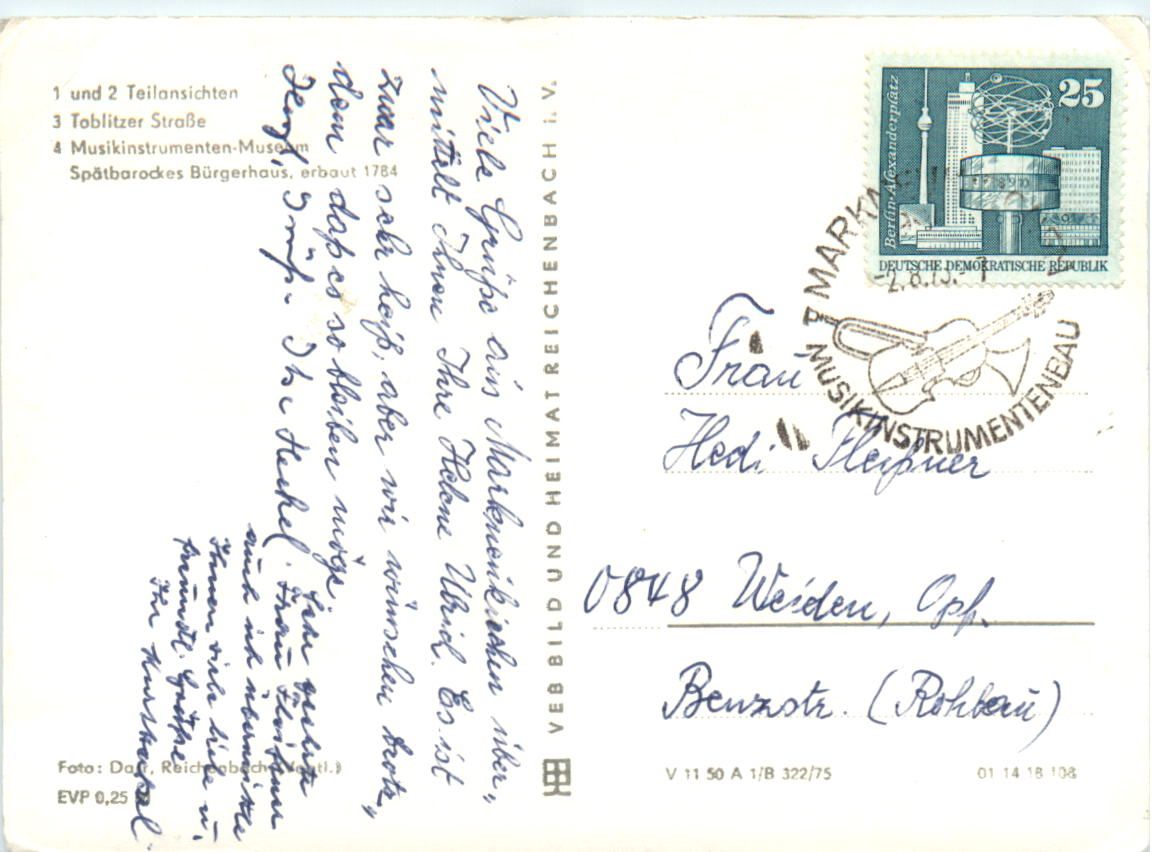 1 und 2 Teilansichten
3 Toblitzer Straße
4 Musikinstrumenten-Museum
Spätbarockes Bürgerhaus, erbaut 1784
Viele Grüße aus Markneukirchen über„
mittelt Ihnen Ihre Helene Es ist
zwar sehr heiß, aber wir wünschen trotz„
dem daß es so bleiben möge.
Herzl. Grüße Ihr Herkel.
Sehr geehrte
Frau Fleißner
auch ich übermittle
Ihnen viele liebe u.
freundl. Grüße
Ihr
Foto: Darr, Reichenbach (Vogtl.)
EVP 0,25
VEB BILD UND HEIMAT REICHENBACH i. V.
Berlin-Alexanderplatz
25
DEUTSCHE DEMOKRATISCHE REPUBLIK
-2.8.75.-7
MUSIKINSTRUMENTENBAU
Frau
Hedi Fleißner
0848 Weiden, Opf.
Benzstr. (Rohbau)
V 11 50 A 1/B 322/75
01 14 18 108